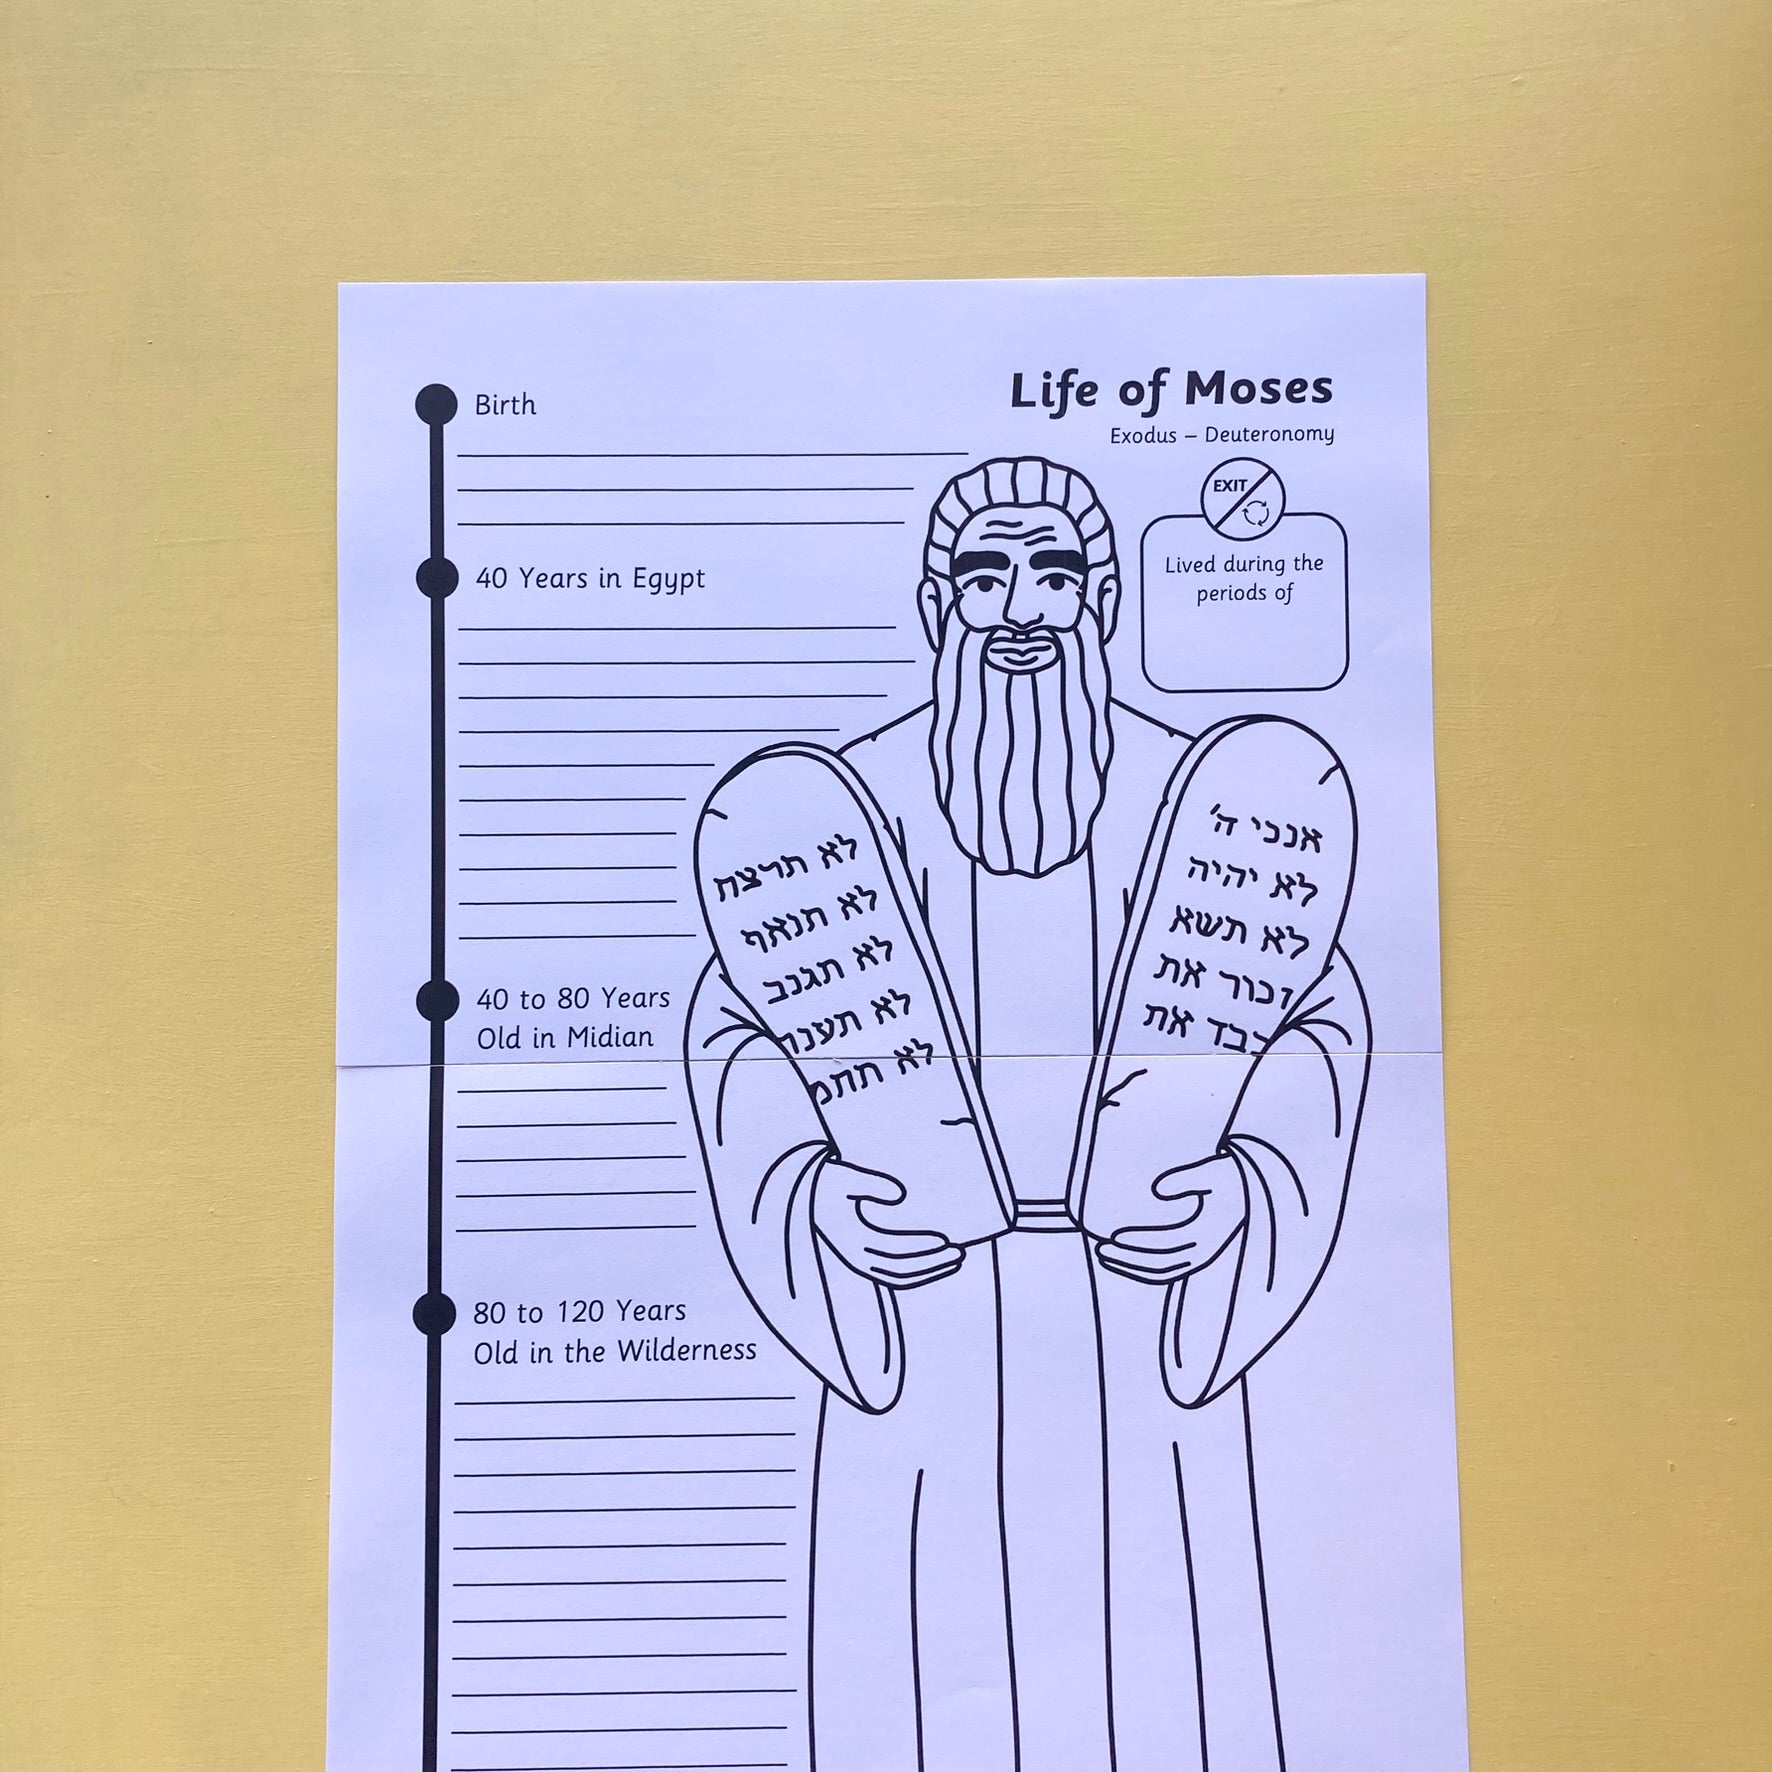 Life of Moses
Exodus – Deuteronomy
EXIT
Lived during the
periods of
Birth
40 Years in Egypt
40 to 80 Years
Old in Midian
80 to 120 Years
Old in the Wilderness
אנכי ה'
לא יהיה
לא תשא
זכור את
כבד את
לא תרצח
לא תנאף
לא תגנב
לא תענה
לא תחמ